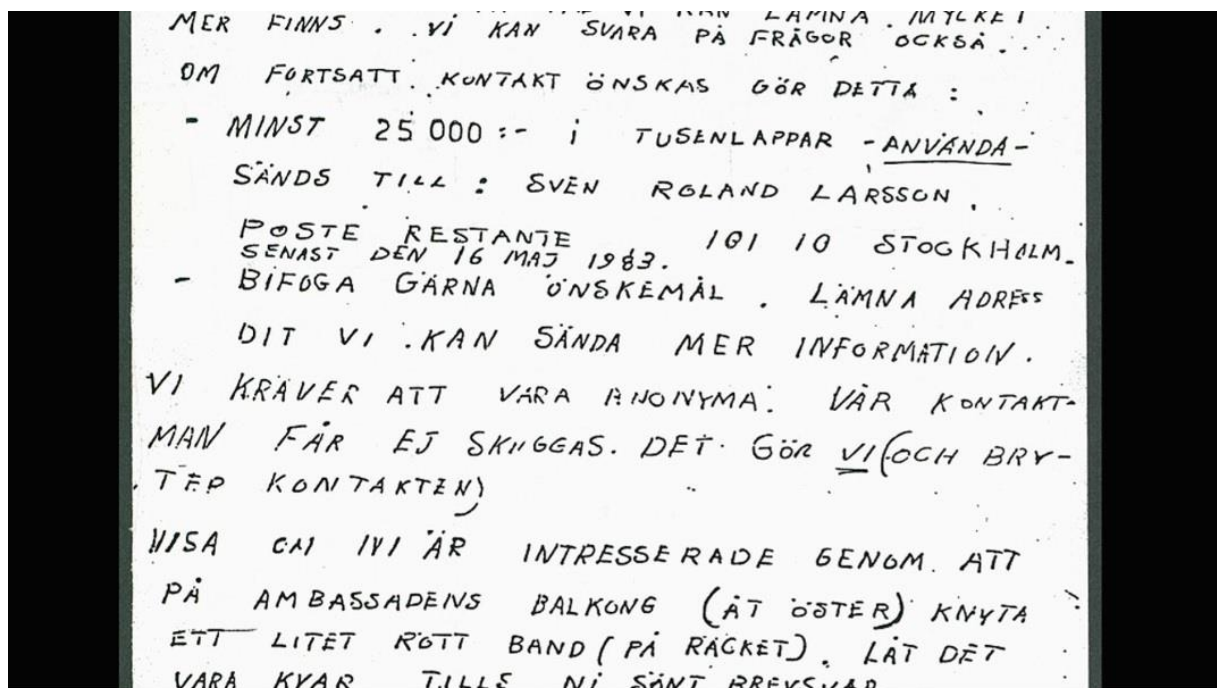 VI KAN LÄMNA. MYCKET
MER FINNS. VI KAN SVARA PÅ FRÅGOR OCKSÅ.
OM FORTSATT KONTAKT ÖNSKAS GÖR DETTA :
- MINST 25 000 :- i TUSENLAPPAR - ANVÄNDA -
SÄNDS TILL : SVEN ROLAND LARSSON.
POSTE RESTANTE 101 10 STOCKHOLM.
SENAST DEN 16 MAJ 1983.
- BIFOGA GÄRNA ÖNSKEMÅL. LÄMNA ADRESS
DIT VI KAN SÄNDA MER INFORMATION.
VI KRÄVER ATT VARA ANONYMA. VÅR KONTAKT-
MAN FÅR EJ SKUGGAS. DET GÖR VI (OCH BRY-
TER KONTAKTEN)
VISA OM NI ÄR INTRESSERADE GENOM ATT
PÅ AMBASSADENS BALKONG (ÅT ÖSTER) KNYTA
ETT LITET RÖTT BAND (PÅ RÄCKET). LÅT DET
VARA KVAR TILLS NI SÄNT BREVSVAR